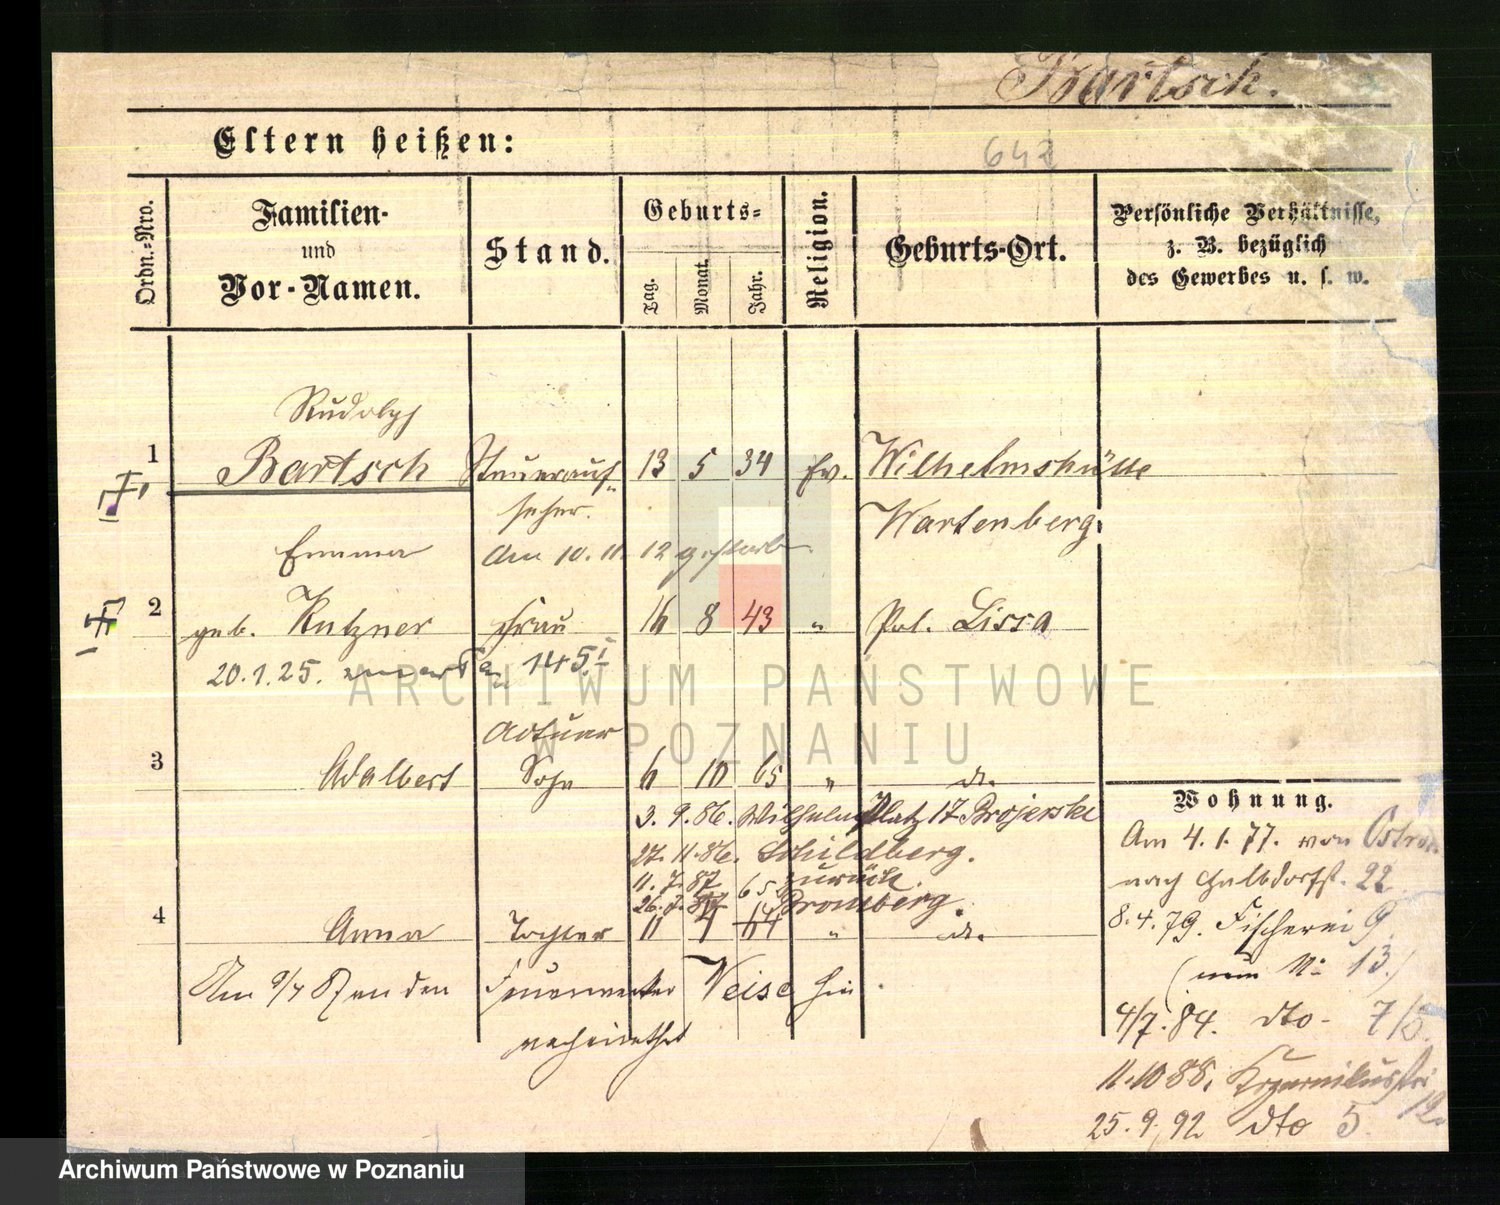 Bartsch.
Eltern heißen:
642
Ordn.-Nro.
Familien-
und
Vor-Namen.
Stand.
Geburts-
Tag.
Monat.
Jahr.
Religion.
Geburts-Ort.
Persönliche Verhältnisse,
z. B. bezüglich
des Gewerbes u. s. w.
Rudolph
1 Bartsch Steuerauf- 13 5 34 ev. Wilhelmshütte
seher. Wartenberg
Emma Am 10. 11. 12 gestorben
2 geb. Kutzner Frau 16 8 43 " Pol. Lissa
20.1.25. 145
Actuar
3 Adalbert Sohn 6 10 65 " do.
3. 9. 86. Wilhelmsplatz 17
27. 11. 86. Schildberg.
11. 7. 87 zurück.
26. 7. 87 Bromberg.
4 Anna Tochter 11 4 " do.
Am 9/4 an den Feuerwerker Weise hier
verheirathet
Wohnung.
Am 4. 1. 77. von
nach Halbdorfst. 22
8. 4. 79. Fischerei 9
(neu No 13.)
4/7. 84. dto. 7/8.
11.10 88.
25. 9. 92 dto 5.
ARCHIWUM PAŃSTWOWE
W POZNANIU
Archiwum Państwowe w Poznaniu